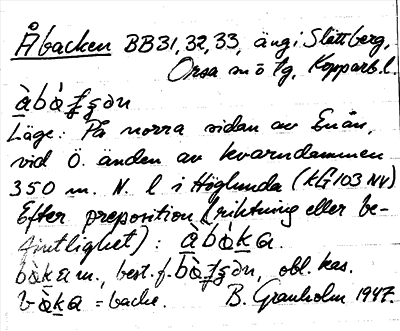 Åbacken BB31, 32, 33, äng i Slättberg,
Orsa sn ö tg, Kopparb. l.
Läge: På norra sidan av Enån,
vid Ö. änden av kvarndammen
350 m. N. l i Höglunda (KG103 NV)
Efter preposition (riktning eller be-
fintlighet): àbòka.
bòka m., best. f. obl. kas.
bòka = backe. B. Granholm 1947.